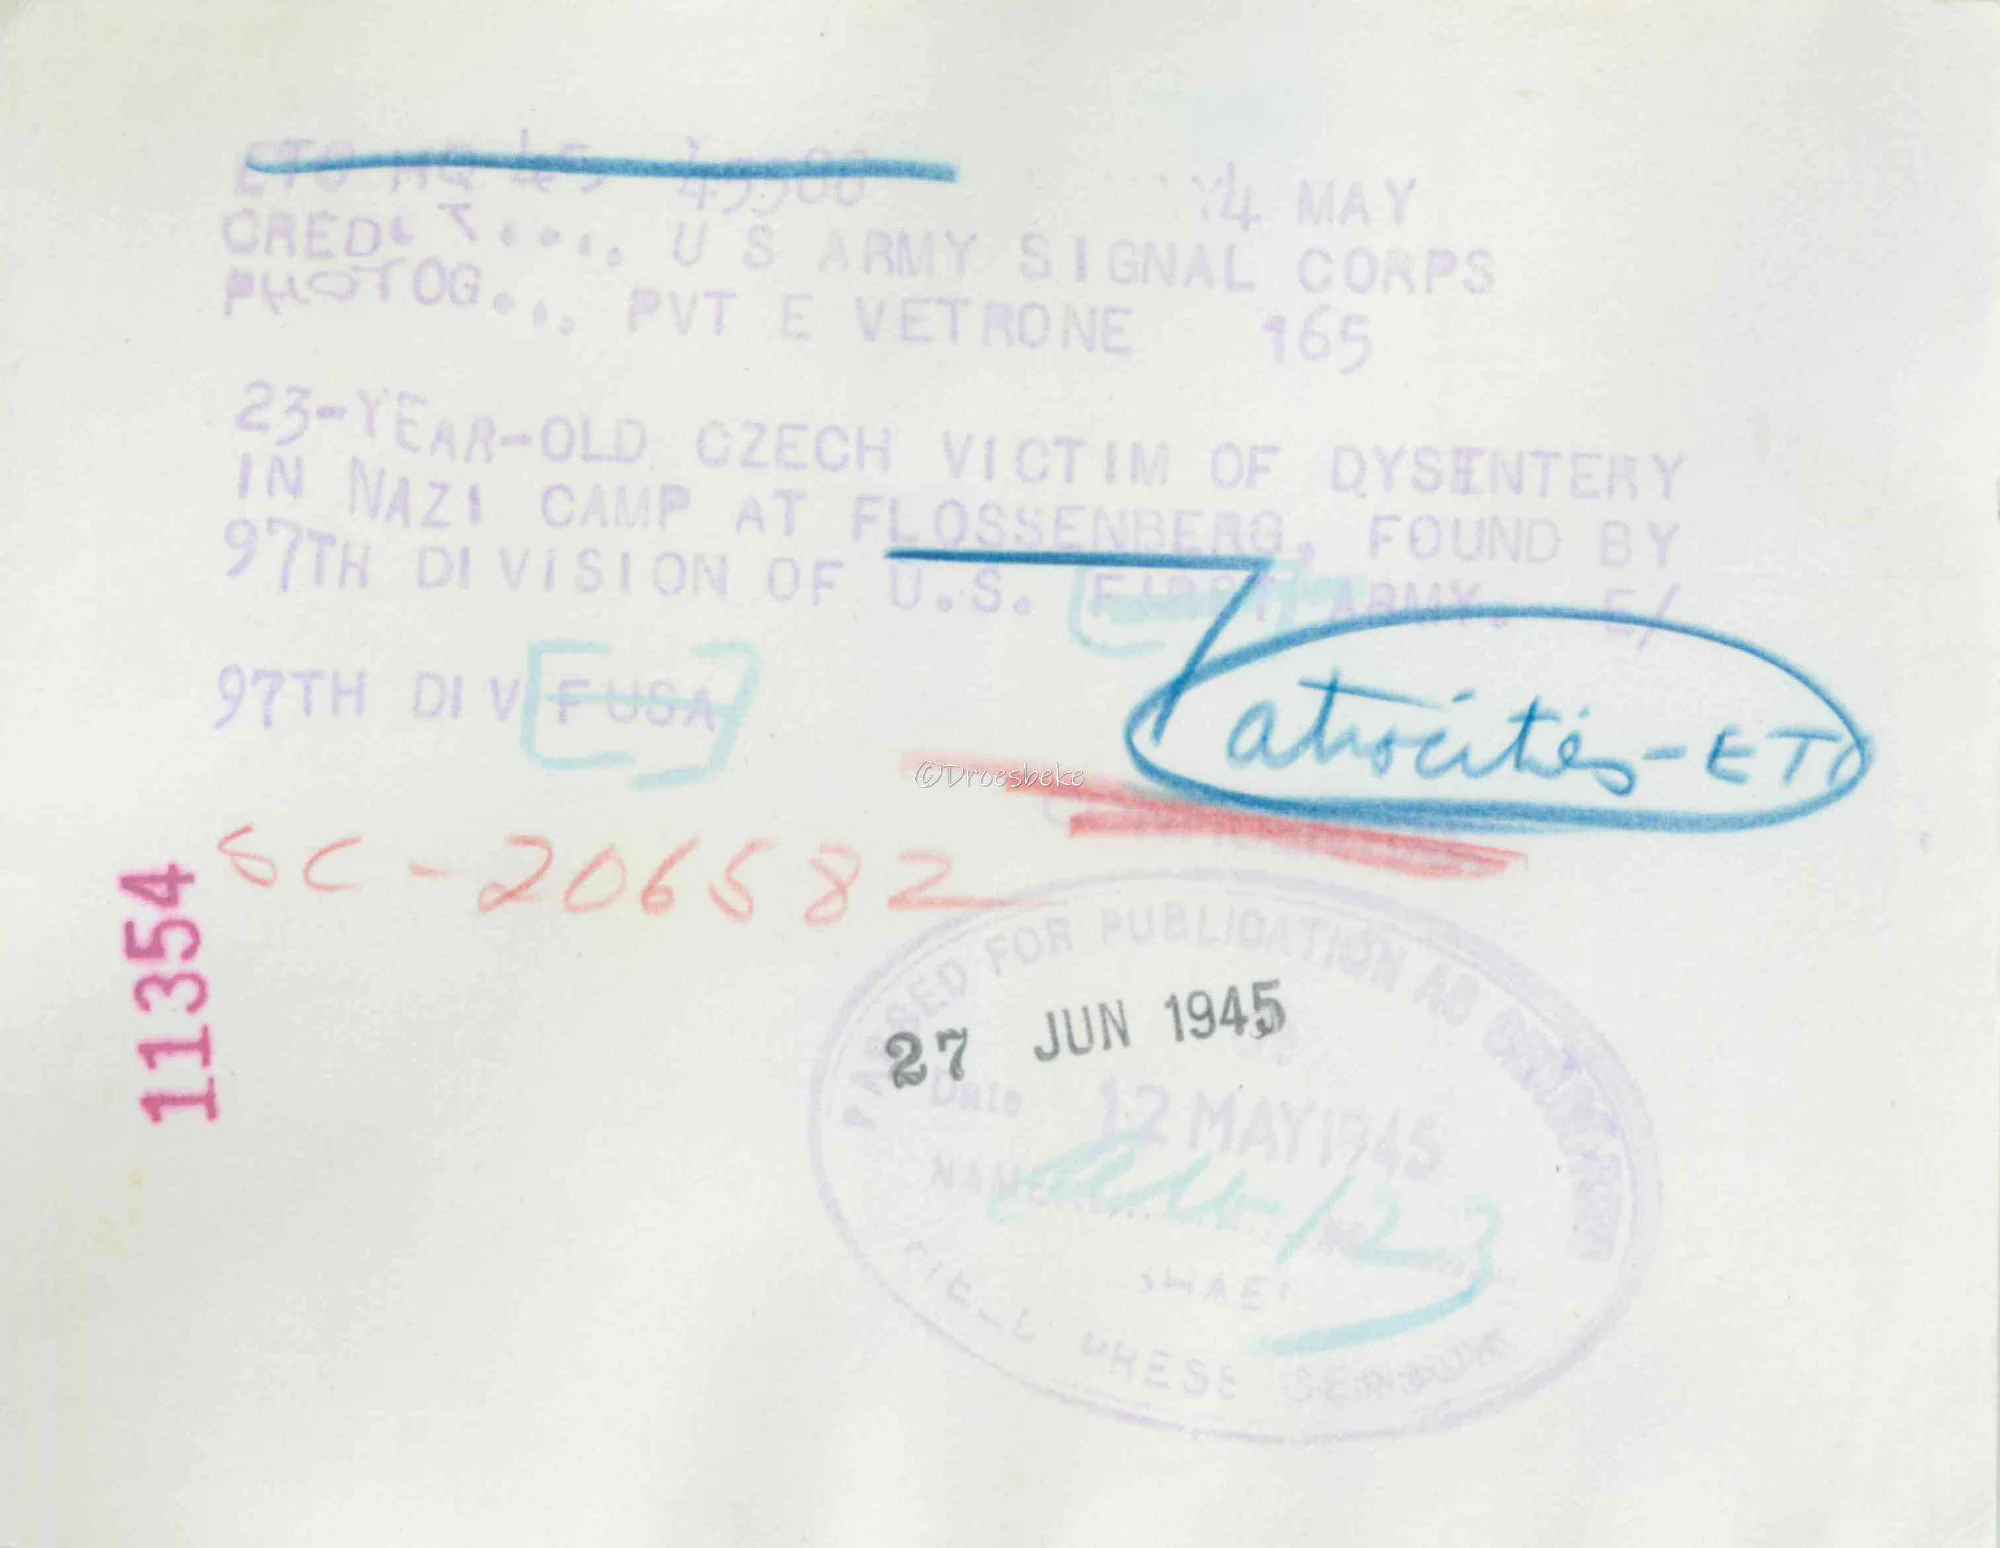 ETO HQ 45
4 MAY
CREDIT..... U S ARMY SIGNAL CORPS
PHOTOG... PVT E VETRONE 165
23-YEAR-OLD CZECH VICTIM OF DYSENTERY
IN NAZI CAMP AT FLOSSENBERG, FOUND BY
97TH DIVISION OF U.S. FIRST ARMY. E/
97TH DIV FUSA
atrocities - ETO
©Droesbeke
SC-206582
11354
PASSED FOR PUBLICATION AS CENSORED
27 JUN 1945
Date 12 MAY 1945
NAME
123
SHAEF
FIELD PRESS CENSOR